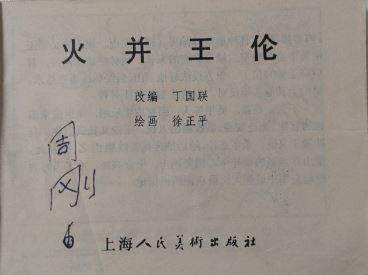 火并王伦
改编 丁国联
绘画 徐正平
周
刚
6
上海人民美術出版社